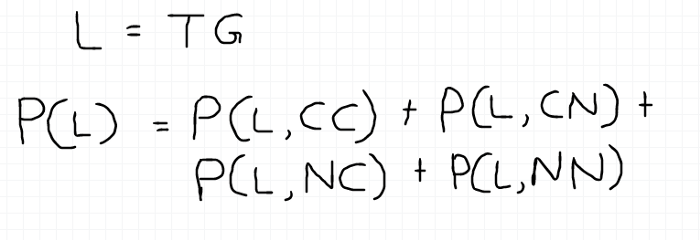 L = TG
P(L) = P(L,CC) + P(L,CN) +
P(L,NC) + P(L,NN)